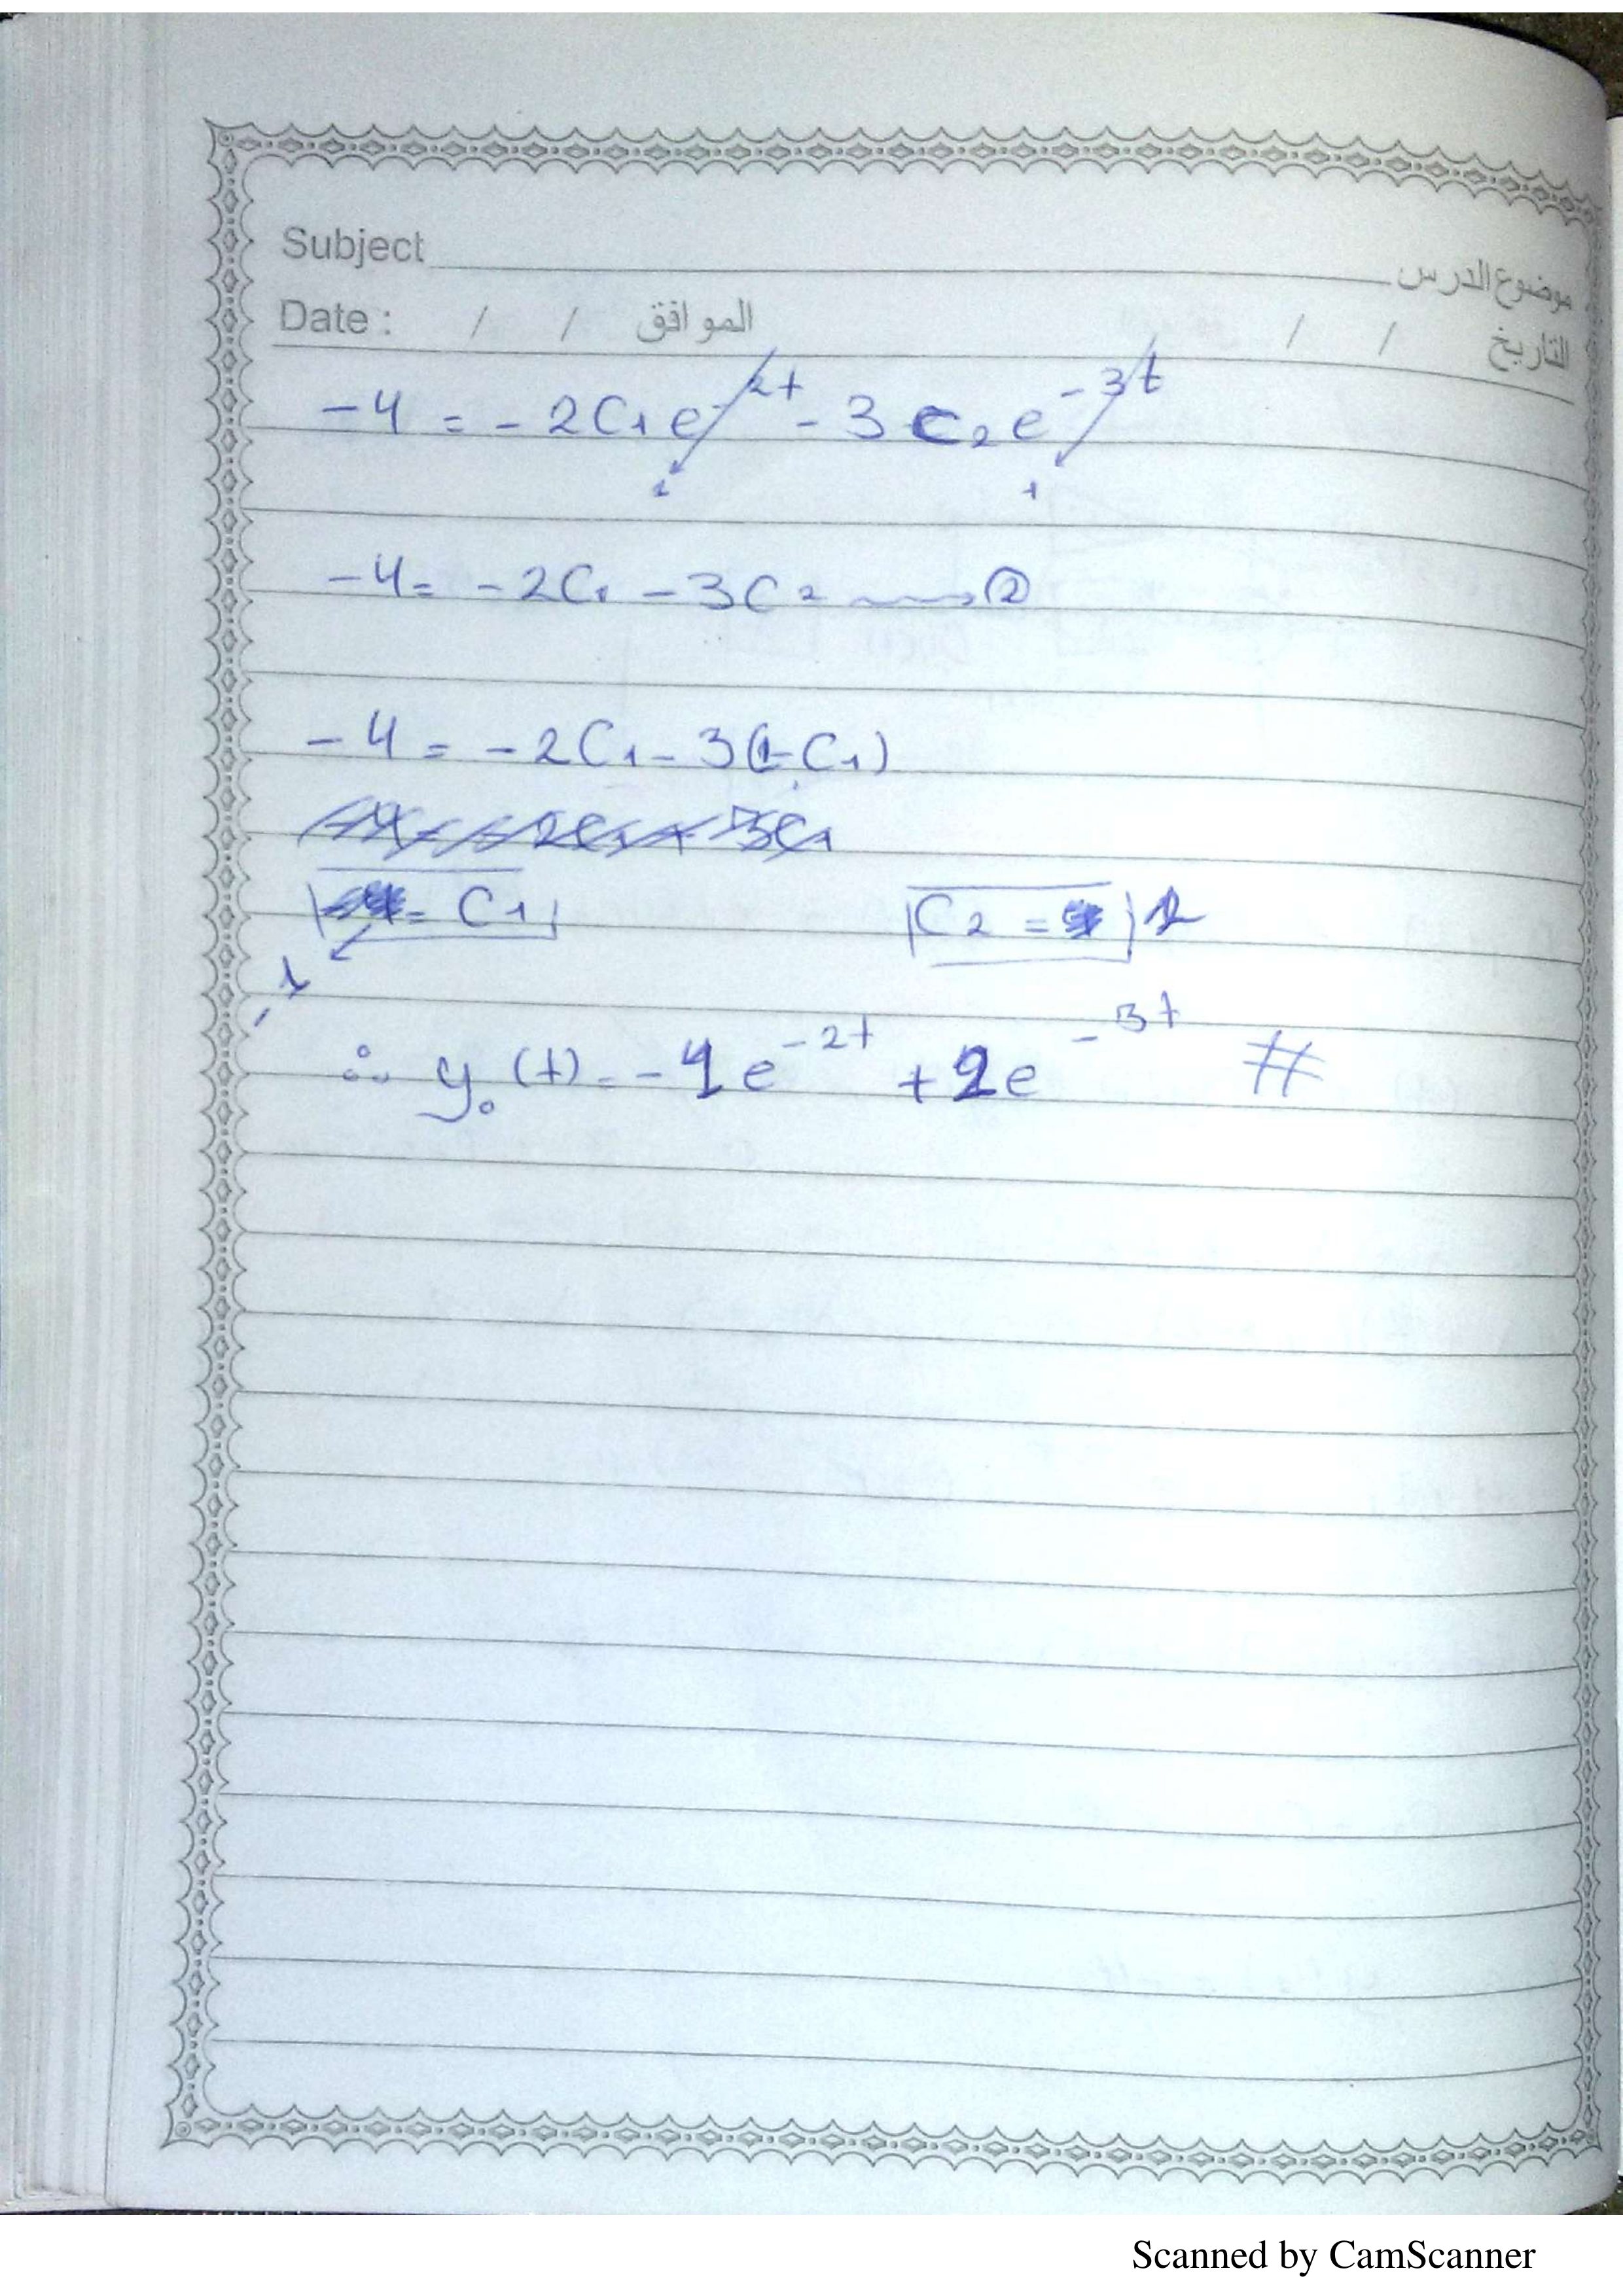 Subject موضوع الدرس
Date : / / الموافق / / التاريخ
-4 = -2C1e^-2t - 3C2e^-3t
1 1
-4 = -2C1 - 3C2 → ②
-4 = -2C1 - 3(1-C1)
= C1 C2 = 2
-1
∴ y₀(t) = -1e^-2t + 2e^-3t #
Scanned by CamScanner